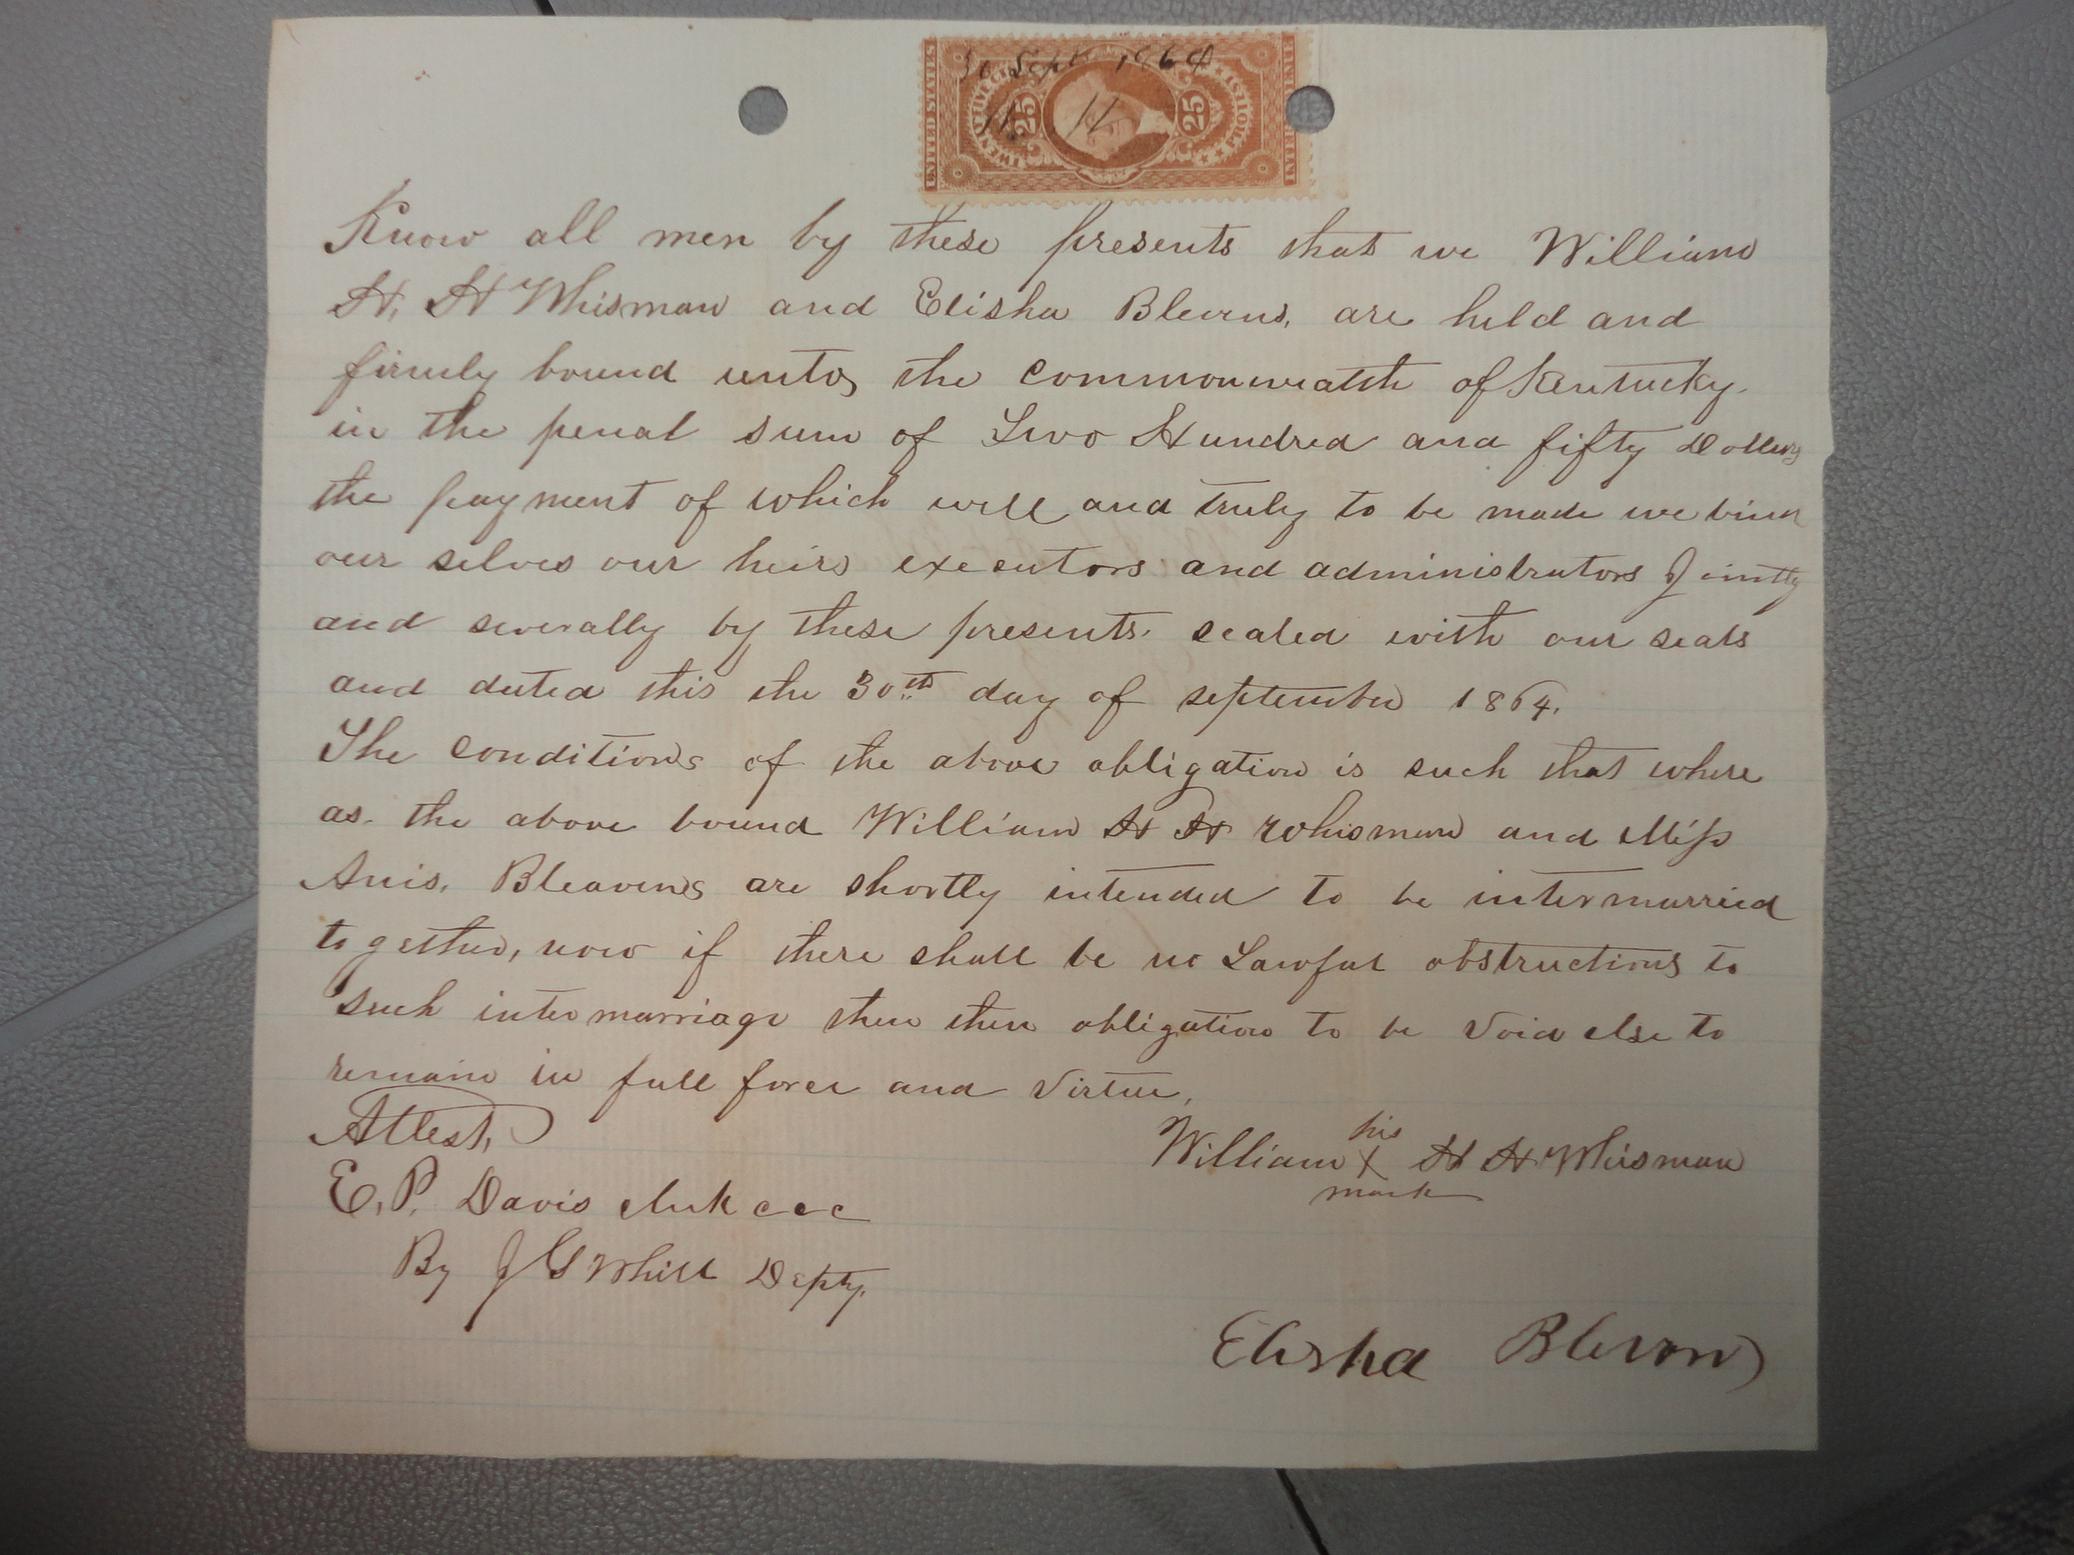 30 Sept 1864
UNITED STATES
TWENTY FIVE CTS
25
H
25
Know all men by these presents that we William
H. H Whisman and Elisha Blevins, are held and
firmly bound unto the commonwealth of Kentucky.
in the penal sum of Two Hundred and fifty Dollars
the payment of which will and truly to be made we bind
our selves our heirs executors and administrators Jointly
and severally by these presents. sealed with our seals
and dated this the 30th day of september 1864.
The conditions of the above obligation is such that where
as. the above bound William H H Whisman and Miss
Anis. Bleavens are shortly intended to be intermarried
together, now if there shall be no Lawful obstructions to
such intermarriage then then obligation to be void else to
remain in full force and virtue,
Attest,
William his X mark H H Whisman
E. P. Davis Clerk ccc
By J G Whitt Depty.
Elisha Blevins